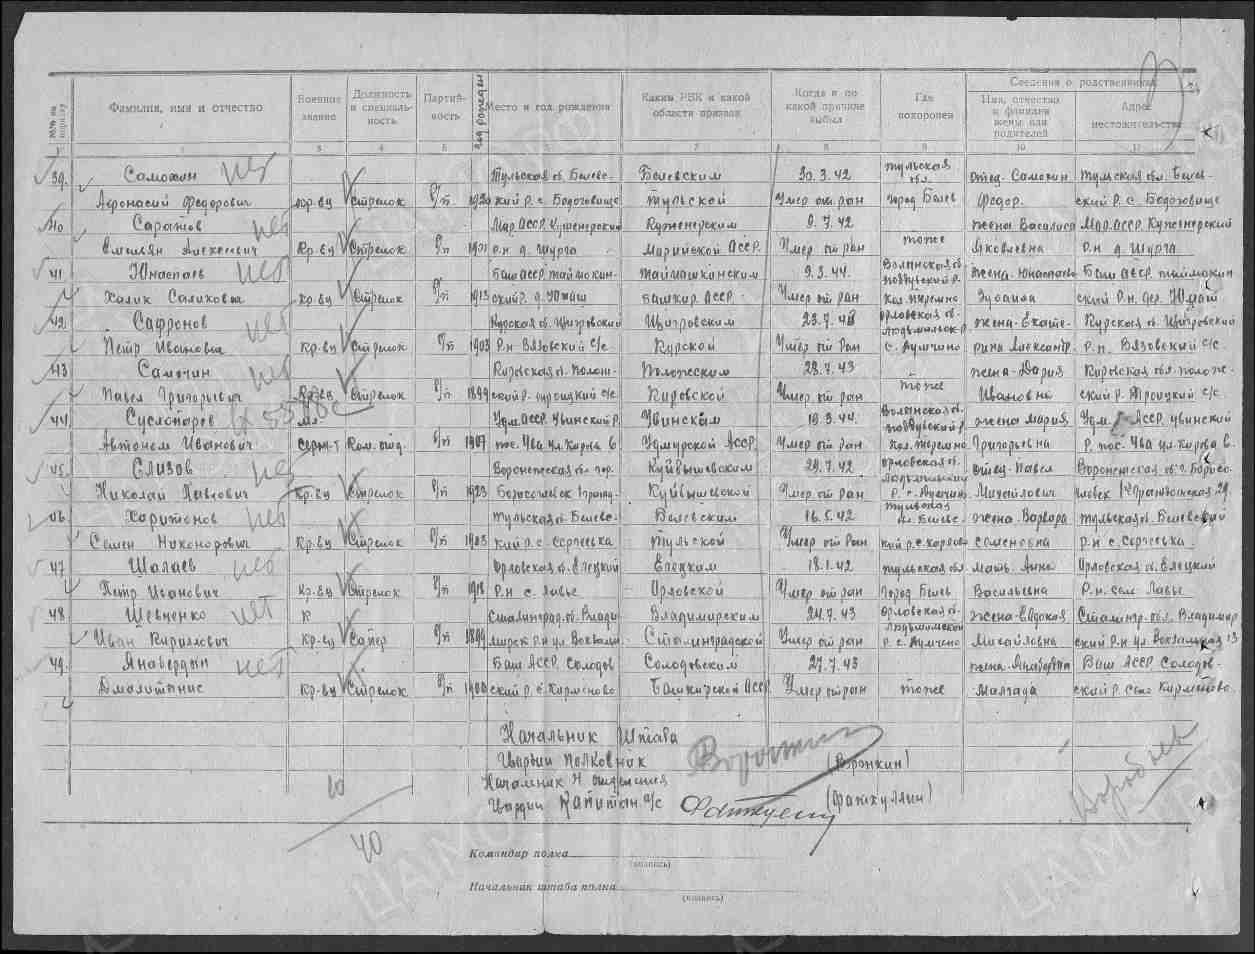 Сведения о родственниках
№№ по порядку Фамилия, имя и отчество Военное звание Должность и специальность Партийность год рожден Место и год рождения Каким РВК и какой области призван Когда и по какой причине выбыл Где похоронен Имя, отчество и фамилия жены или родителей Адрес местожительства
1 2 3 4 5 6 7 8 9 10 11
39. Самохин нет Тульская об. Белевс- Белевским 30.3.42 Тульская обл. отец. Самохин Тульская обл. Белев-
Афонасий Федорович кр-вц Стрелок б/п ский р. с. Бодоговище Тульской Умер от ран город Белев Федор. ский Р. с. Бодоговище
40 Саратов нет Мар. АССР. Куженерский Куженерским 9.7.42 жена Василиса Мар. АССР. Куженерский
Емельян Алексеевич Кр-вц Стрелок б/п р.н д. Шурга Марийской АССР. Умер от ран тоже Яковлевна р.н д. Шурга
41 Юнаспаев нет Баш АССР Таймашкин- Таймашкинским 9.3.44. Волынская об. жена. Баш АССР
Халик Саликович кр-вц Стрелок б/п 1913 ский р. д. Юмаш Башкир. АССР. Умер от ран ский Р.н. дер. Юмаш
42. Сафронов нет Курская об. Щигровский Щигровским 23.7.43 Орловская об. жена-Екате- Курская об. Щигровский
Петр Иванович Кр-вц Стрелок б/п 1903 Р.н. Вязовский с/с Курской Умер от ран с. Думчино рина Александр. Р.н. Вязовский с/с.
43 Самочин нет Кировская об. Полом- Поломским 23.7.43 тоже жена-Дария Кировская обл. полом-
Павел Григорьевич Кр-вц Стрелок б/п 1899 ский р. Троицкий с/с Кировской Умер от ран Ивановна ский р. Троицкий с/с.
44. Суслопоров мл. Удм. АССР. Увинский р. Увинским 19.3.44. Волынская об. жена Мария Удм. АССР Увинский
Автоном Иванович серж-т Ком. отд. б/п 1907 пос. Ува ул. Кирова 6. Удмурской АССР. Умер от ран Григорьевна Р. пос. Ува ул. Кирова 6.
45. Елизов нет Воронежская об. гор. Куйвышевским 29.7.42 Орловская об. отец-Павел Воронежская об. г. Борисо-
Николай Павлович Кр-вц Стрелок б/п 1923 Куйвышевской Умер от ран Р. с. Думчино Михайлович 29.
46. Харитонов нет Тульская об. Белевс- Белевским 16.5.42 Тульская об. Белевс- жена. Варвара Тульская об. Белевский
Семен Никонорович Кр-вц Стрелок б/п 1903 кий р. с. Сергеевка Тульской Умер от ран Семеновна р.н с. Сергеевка.
47 Шалаев нет Орловская об. Елецкий Елецким 18.1.42 Тульская обл мать. Анна Орловская об. Елецкий
Петр Иванович Кр-вц Стрелок б/п 1918 Р.н с. Лавы Орловской Умер от ран Город Белев Васильевна Р.н. сел. Лавы
48 Шевченко нет К Сталинград. об. Влади- Владимирским 24.7.43 Орловская об. жена-Евдокия Сталингр. обл. Владимир
Иван Кириллович Кр-вц Сапер б/п 1899 мирск р.н ул. Вокзальн. Сталинградской Умер от ран р. с. Думчино Михайловна ский Р.н ул. Вокзальная 13
49. нет Баш АССР. Солодов Солодовским 27.7.43 жена- Баш АССР. Солодов-
Кр-вц Стрелок б/п 1900 ский р. с. Кирменово Башкирской АССР. Умер от ран тоже ский р. село Кирменово.
Начальник Штаба
Гвардии полковник (Воронкин)
Начальник 4 отделения
Гвардии Капитан а/с (Фаткуллин)
10
40
Командир полка
(подпись)
Начальник штаба полка
(подпись)
ЦАМО РФ